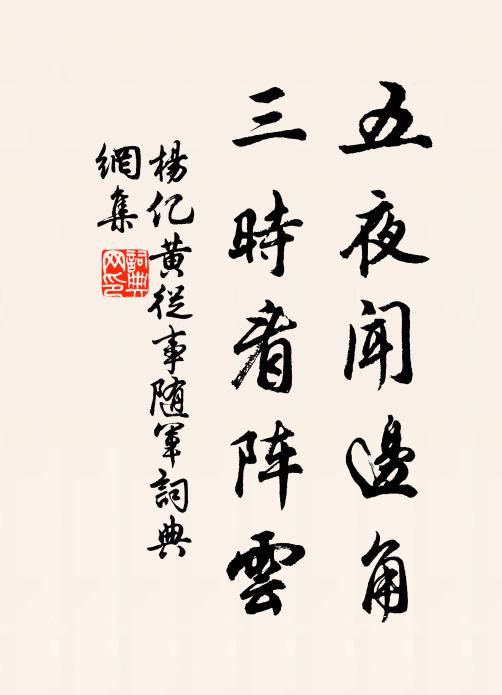 五夜聞邊角
三時看阵雲
楊亿黄從事随軍詞典
網集
詞典
网印